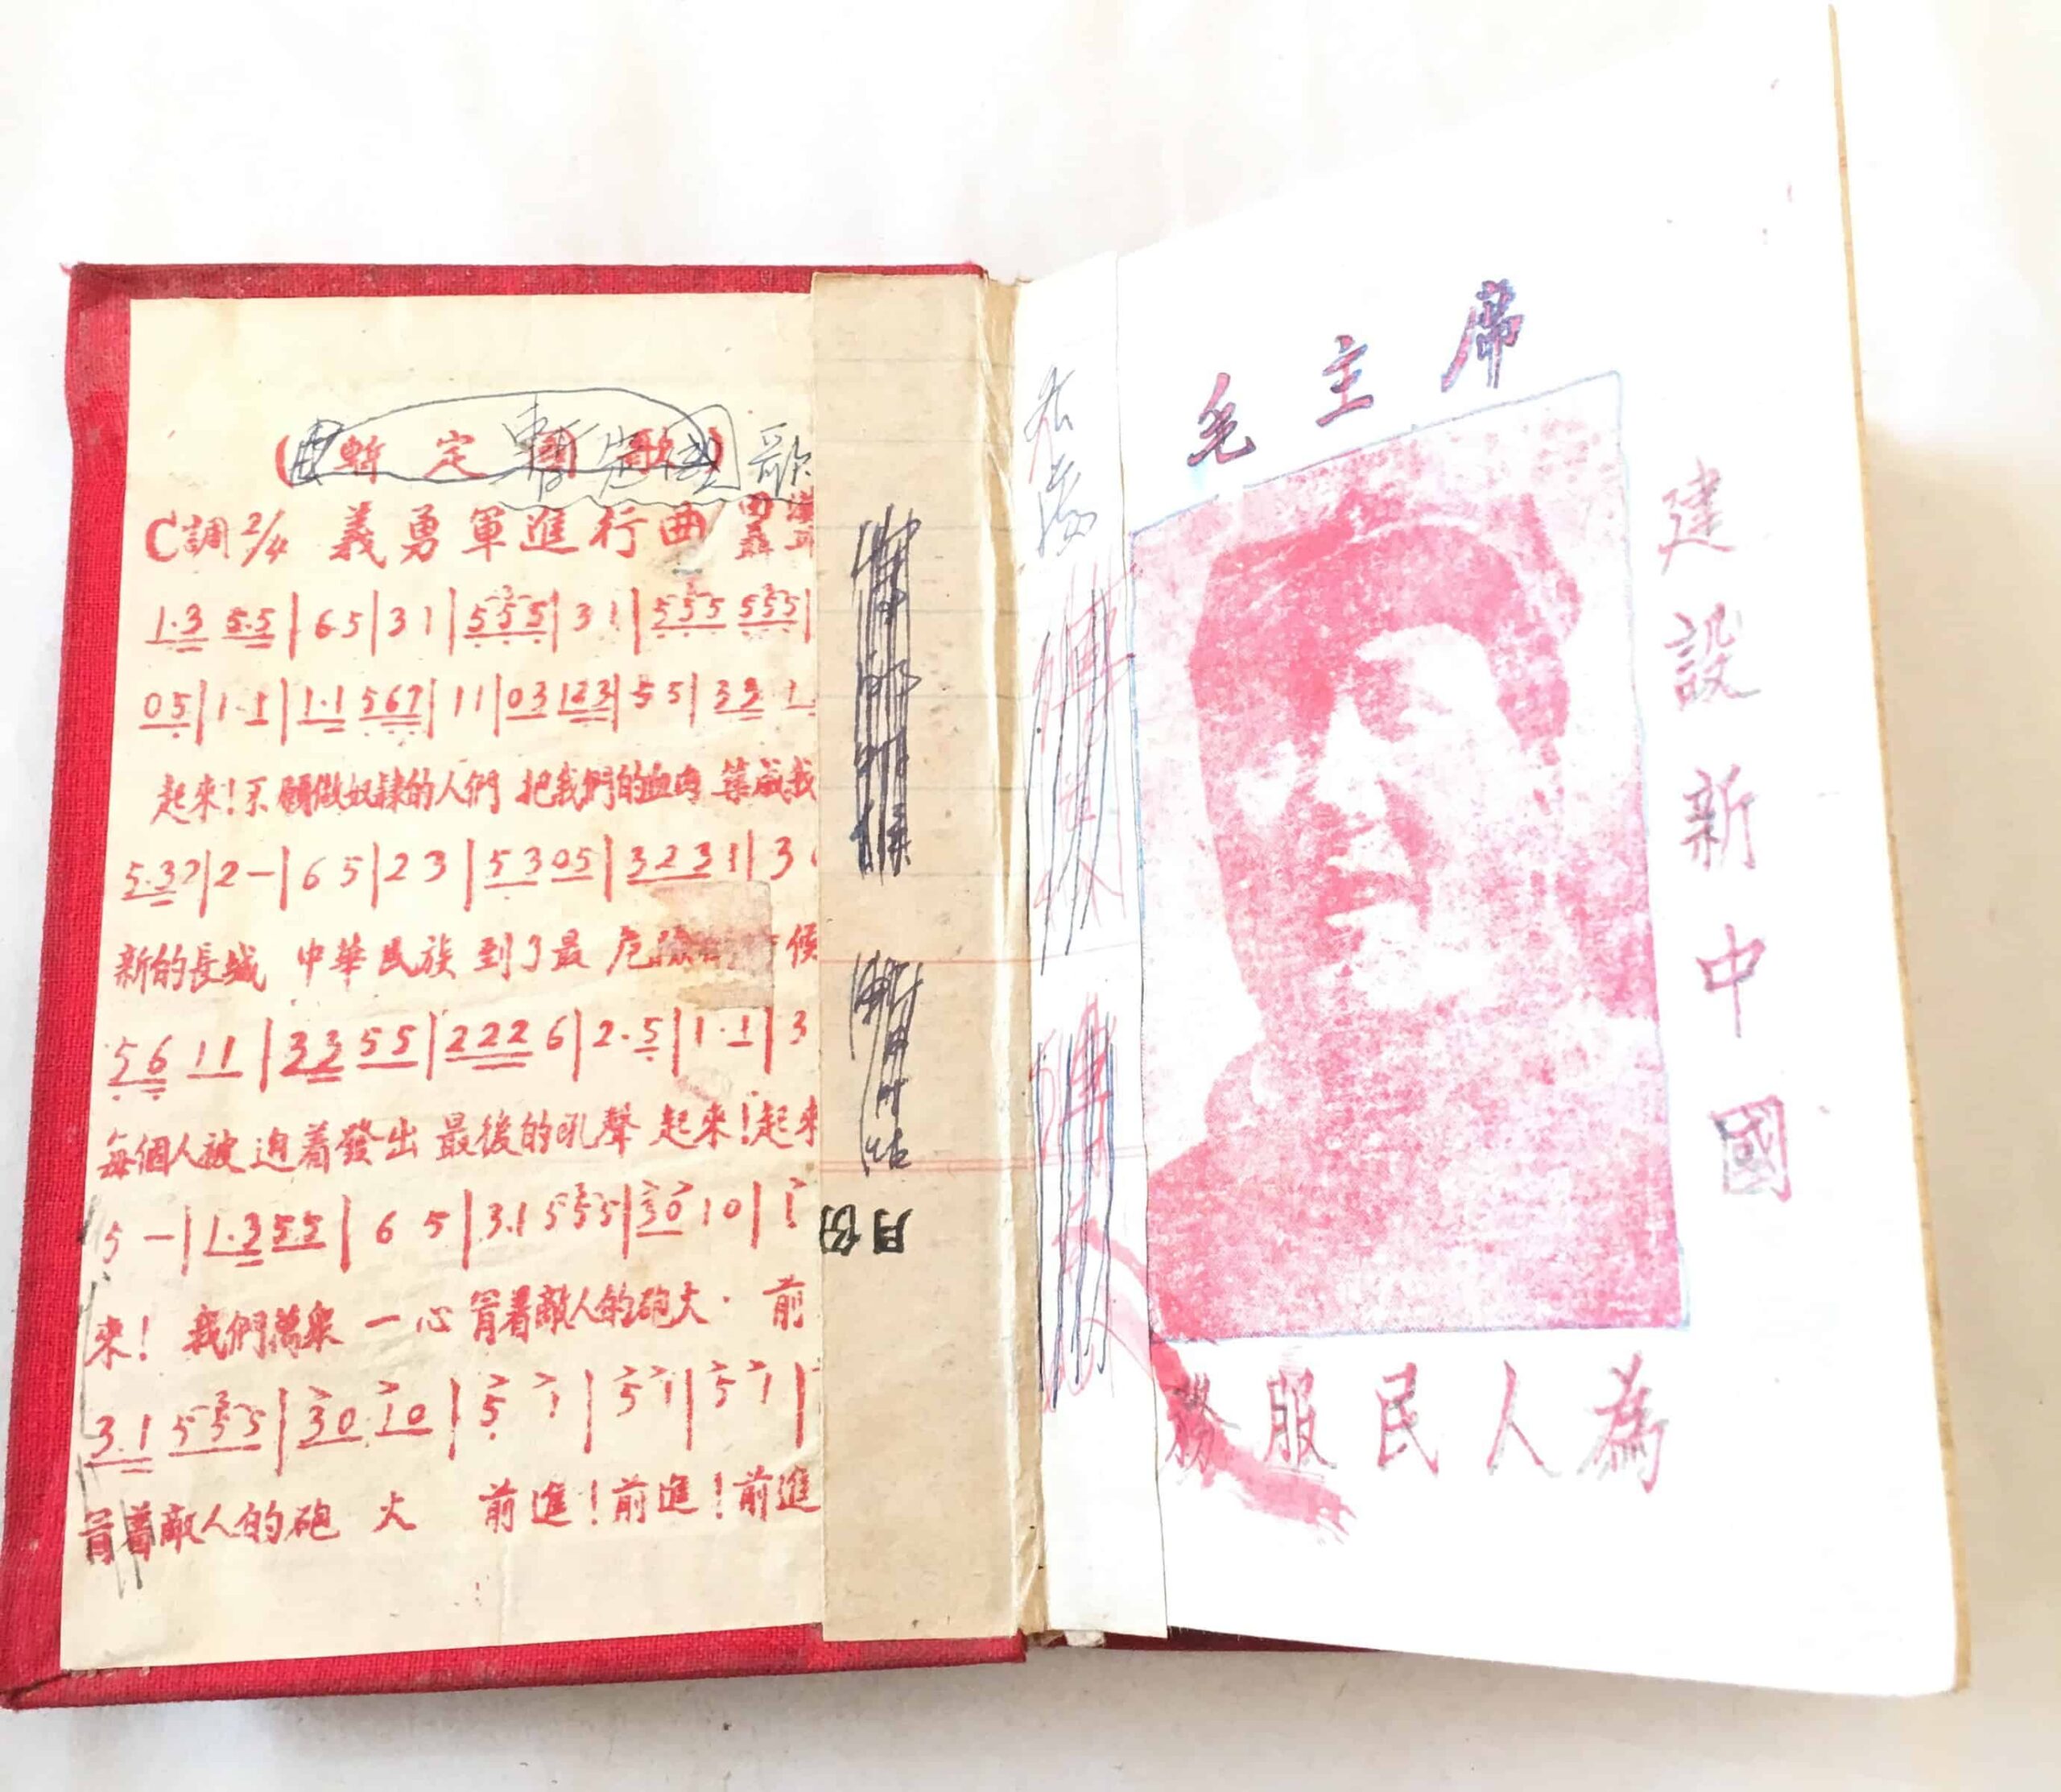 (暫定國歌)
暫定國歌
C調 2/4 義勇軍進行曲
1·3 5·5 | 6 5 | 3 1 | 5 5 5 | 3 1 | 5 5 5 5 5 5 |
0 5 | 1·1 | 1·1 5 6 7 | 1 1 | 0 3 1 2 3 | 5 5 | 3 3 1
起來!不願做奴隸的人們 把我們的血肉 築成我
5·3 2 | 2 — | 6 5 | 2 3 | 5 3 0 5 | 3 2 3 1 | 3
新的長城 中華民族 到了最 危險 候
5 6 1 1 | 3 3 5 5 | 2 2 2 6 | 2·5 | 1·1 | 3
每個人被迫着發出 最後的吼聲 起來!起來
5 — | 1·3 5 5 | 6 5 | 3·1 5 5 5 | 3 0 1 0 |
來! 我們萬衆 一心 冒着敵人的砲火· 前
3·1 5 5 5 | 3 0 1 0 | 5 1 | 5 1 | 5 1 |
冒着敵人的砲 火 前進!前進!前進
月份
毛主席
建設新中國
為人民服務